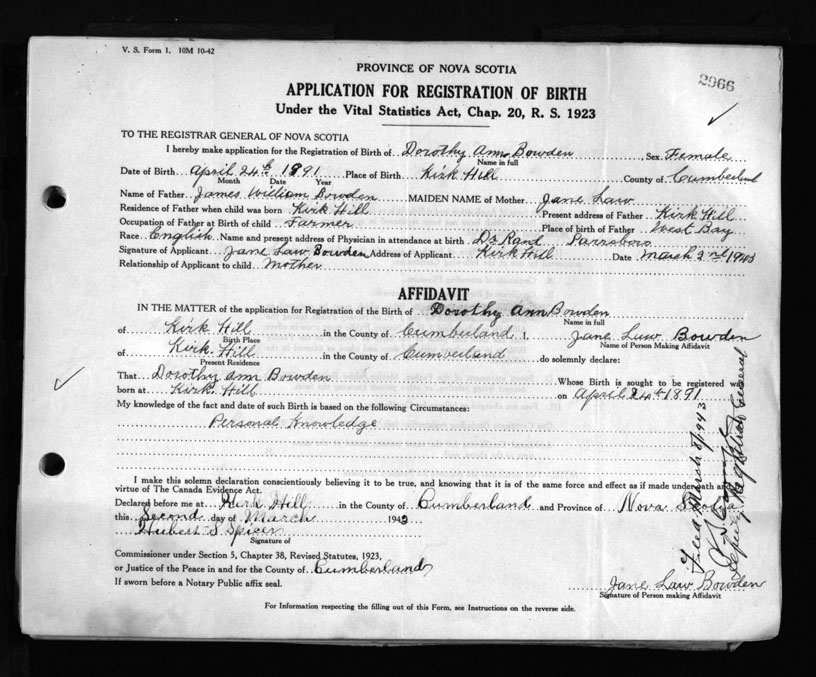 V. S. Form 1. 10M 10-42
PROVINCE OF NOVA SCOTIA
2966
APPLICATION FOR REGISTRATION OF BIRTH
Under the Vital Statistics Act, Chap. 20, R. S. 1923
TO THE REGISTRAR GENERAL OF NOVA SCOTIA
I hereby make application for the Registration of Birth of Dorothy Ann Bowden, Sex Female
Name in full
Date of Birth April 24th 1891 Place of Birth Kirk Hill County of Cumberland
Month Date Year
Name of Father James William Bowden MAIDEN NAME of Mother Jane Law
Residence of Father when child was born Kirk Hill Present address of Father Kirk Hill
Occupation of Father at Birth of child Farmer Place of birth of Father West Bay
Race English Name and present address of Physician in attendance at birth Dr Rand Parrsboro
Signature of Applicant Jane Law Bowden Address of Applicant Kirk Hill Date March 2nd 1943
Relationship of Applicant to child Mother
AFFIDAVIT
IN THE MATTER of the application for Registration of the Birth of Dorothy Ann Bowden
Name in full
of Kirk Hill in the County of Cumberland I, Jane Law Bowden
Birth Place Name of Person Making Affidavit
of Kirk Hill in the County of Cumberland do solemnly declare:
Present Residence
That Dorothy Ann Bowden Whose Birth is sought to be registered was
born at Kirk Hill on April 24th 1891
My knowledge of the fact and date of such Birth is based on the following Circumstances:
Personal Knowledge
I make this solemn declaration conscientiously believing it to be true, and knowing that it is of the same force and effect as if made under oath and
virtue of The Canada Evidence Act.
Declared before me at Kirk Hill in the County of Cumberland and Province of Nova Scotia
this Second day of March 1943
Hubert S Spicer
Signature of
Commissioner under Section 5, Chapter 38, Revised Statutes, 1923,
or Justice of the Peace in and for the County of Cumberland
If sworn before a Notary Public affix seal.
Jane Law Bowden
Signature of Person making Affidavit
For Information respecting the filling out of this Form, see Instructions on the reverse side.
Filed March 8/1943
Deputy Registrar General